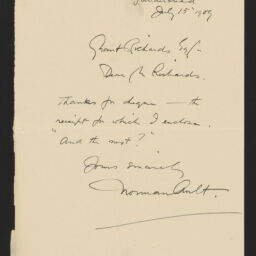 July 15th 1909
Grant Richards Esq
Dear Mr Richards.
Thanks for cheque — the
receipt for which I enclose.
"And the next?"
Yours sincerely
Norman Ault.